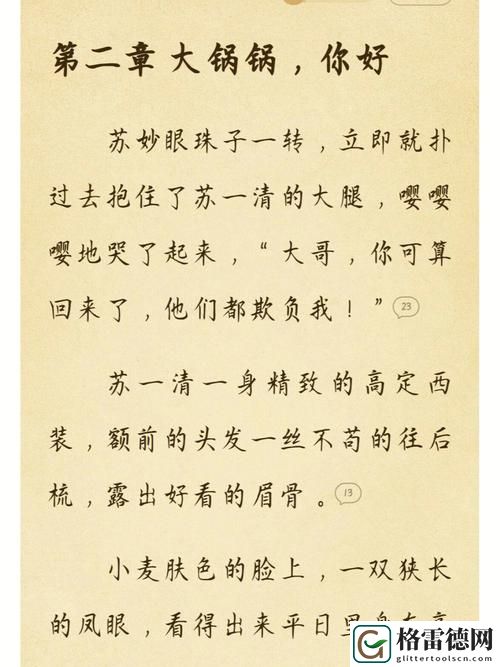 第二章 大锅锅，你好
苏妙眼珠子一转，立即就扑
过去抱住了苏一清的大腿，嘤嘤
嘤地哭了起来，“大哥，你可算
回来了，他们都欺负我！” 23
苏一清一身精致的高定西
装，额前的头发一丝不苟的往后
梳，露出好看的眉骨。 13
小麦肤色的脸上，一双狭长
的凤眼，看得出来平日里
格雷德网
glittertoolscn.com